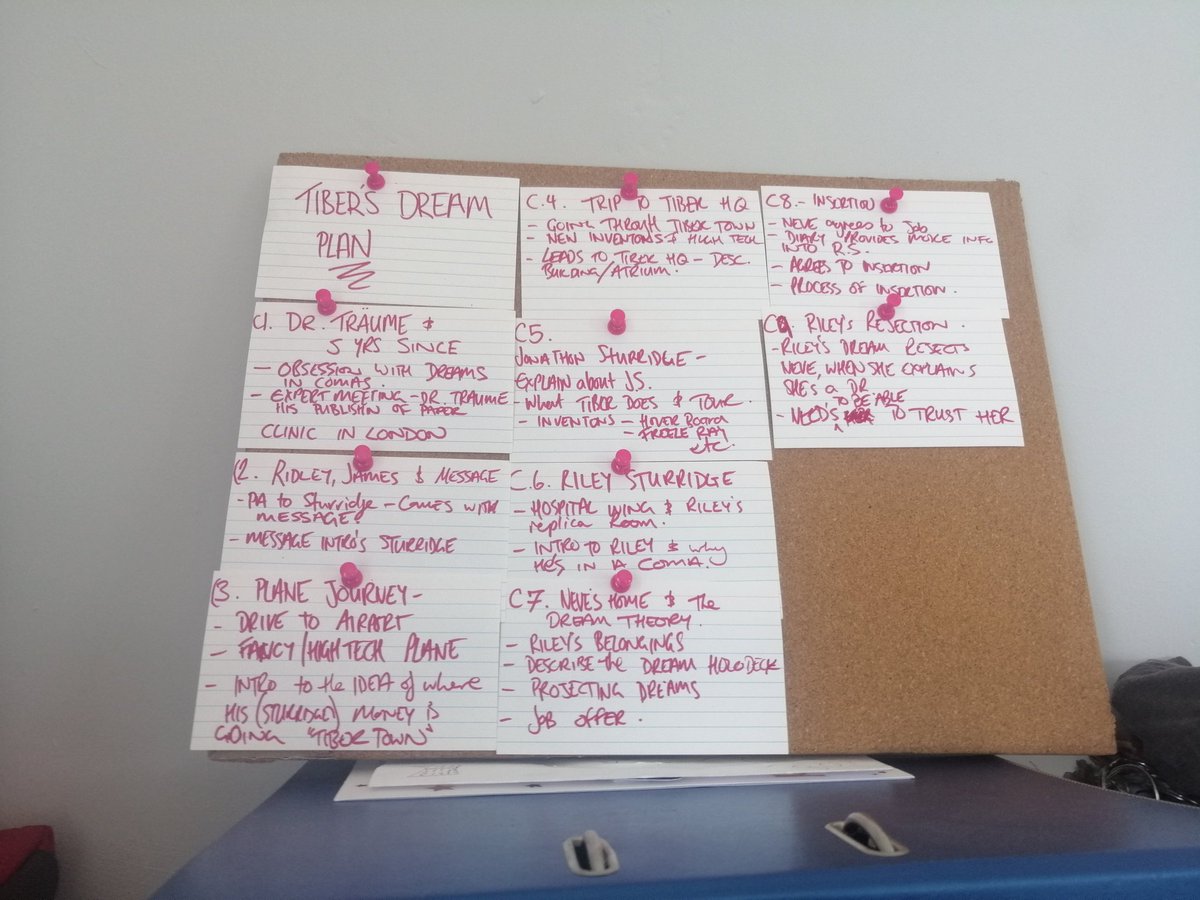 TIBER'S DREAM
PLAN
C1. DR. TRÄUME &
5 YRS SINCE
- OBSESSION WITH DREAMS
IN COMAS.
- EXPERT MEETING - DR. TRAUME
HIS PUBLISHIN OF PAPER
CLINIC IN LONDON
C2. RIDLEY, JAMES & MESSAGE
- PA to Sturridge - Comes with
MESSAGE?
- MESSAGE INTRO'S STURRIDGE
C3. PLANE JOURNEY -
- DRIVE TO AIRPORT
- FANCY/HIGH TECH PLANE
- INTRO to the IDEA of where
HIS (STURRIDGE) MONEY is
GOING "TIBER TOWN"
C.4. TRIP TO TIBER HQ
- GOING THROUGH TIBER TOWN
- NEW INVENTONS & HIGH TECH
- LEADS TO TIBER HQ - DESC.
BUILDING/ATRIUM.
C5.
JONATHON STURRIDGE -
EXPLAIN about JS.
- What TIBER DOES & TOUR.
- INVENTONS - HOVER BOARD
- FREEZE RAY
etc.
C.6. RILEY STURRIDGE
- HOSPITAL WING & RILEY'S
replica Room.
- INTRO TO RILEY & why
HE'S IN A COMA.
C7. NEVE'S HOME & the
DREAM THEORY.
- RILEY'S BELONGINGS
- DESCRIBE the DREAM HOLODECK
- PROJECTING DREAMS
- Job OFFER.
C8. - INSORTION
- NEVE agrees to Job
- DIARY PROVIDES MORE INFO
INTO R.S.
- AGREES TO INSORTION
- PROCESS OF INSORTION.
C9. RILEY'S REJECTION.
- RILEY'S DREAM REJECTS
NEVE, WHEN SHE EXPLAINS
SHE'S a DR
TO BE ABLE
- NEED'S TO TRUST HER